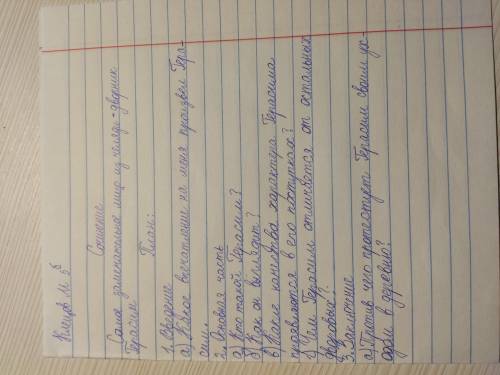 Клецов М 5б
Сочинение
Самое замечательное лицо из челяди - дворник
Герасим.
План:
1. Введение
а) Какое впечатление на меня произвёл Гера-
сим.
2. Основная часть
а) Кто такой Герасим?
б) Как он выглядит?
в) Какие качества характера Герасима
проявляются в его поступках?
г) Чем Герасим отличается от остальных
дворовых?
3. Заключение
а) Против чего протестует Герасим своим ухо-
дом в деревню?